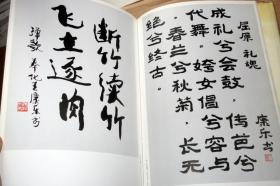 屈原 礼魂
成礼兮会鼓，传芭兮
代舞，姱女倡兮容与
，春兰兮秋菊，长无
绝兮终古。
康乐书
断竹续竹
飞土逐肉
弹歌 奉化王康乐书